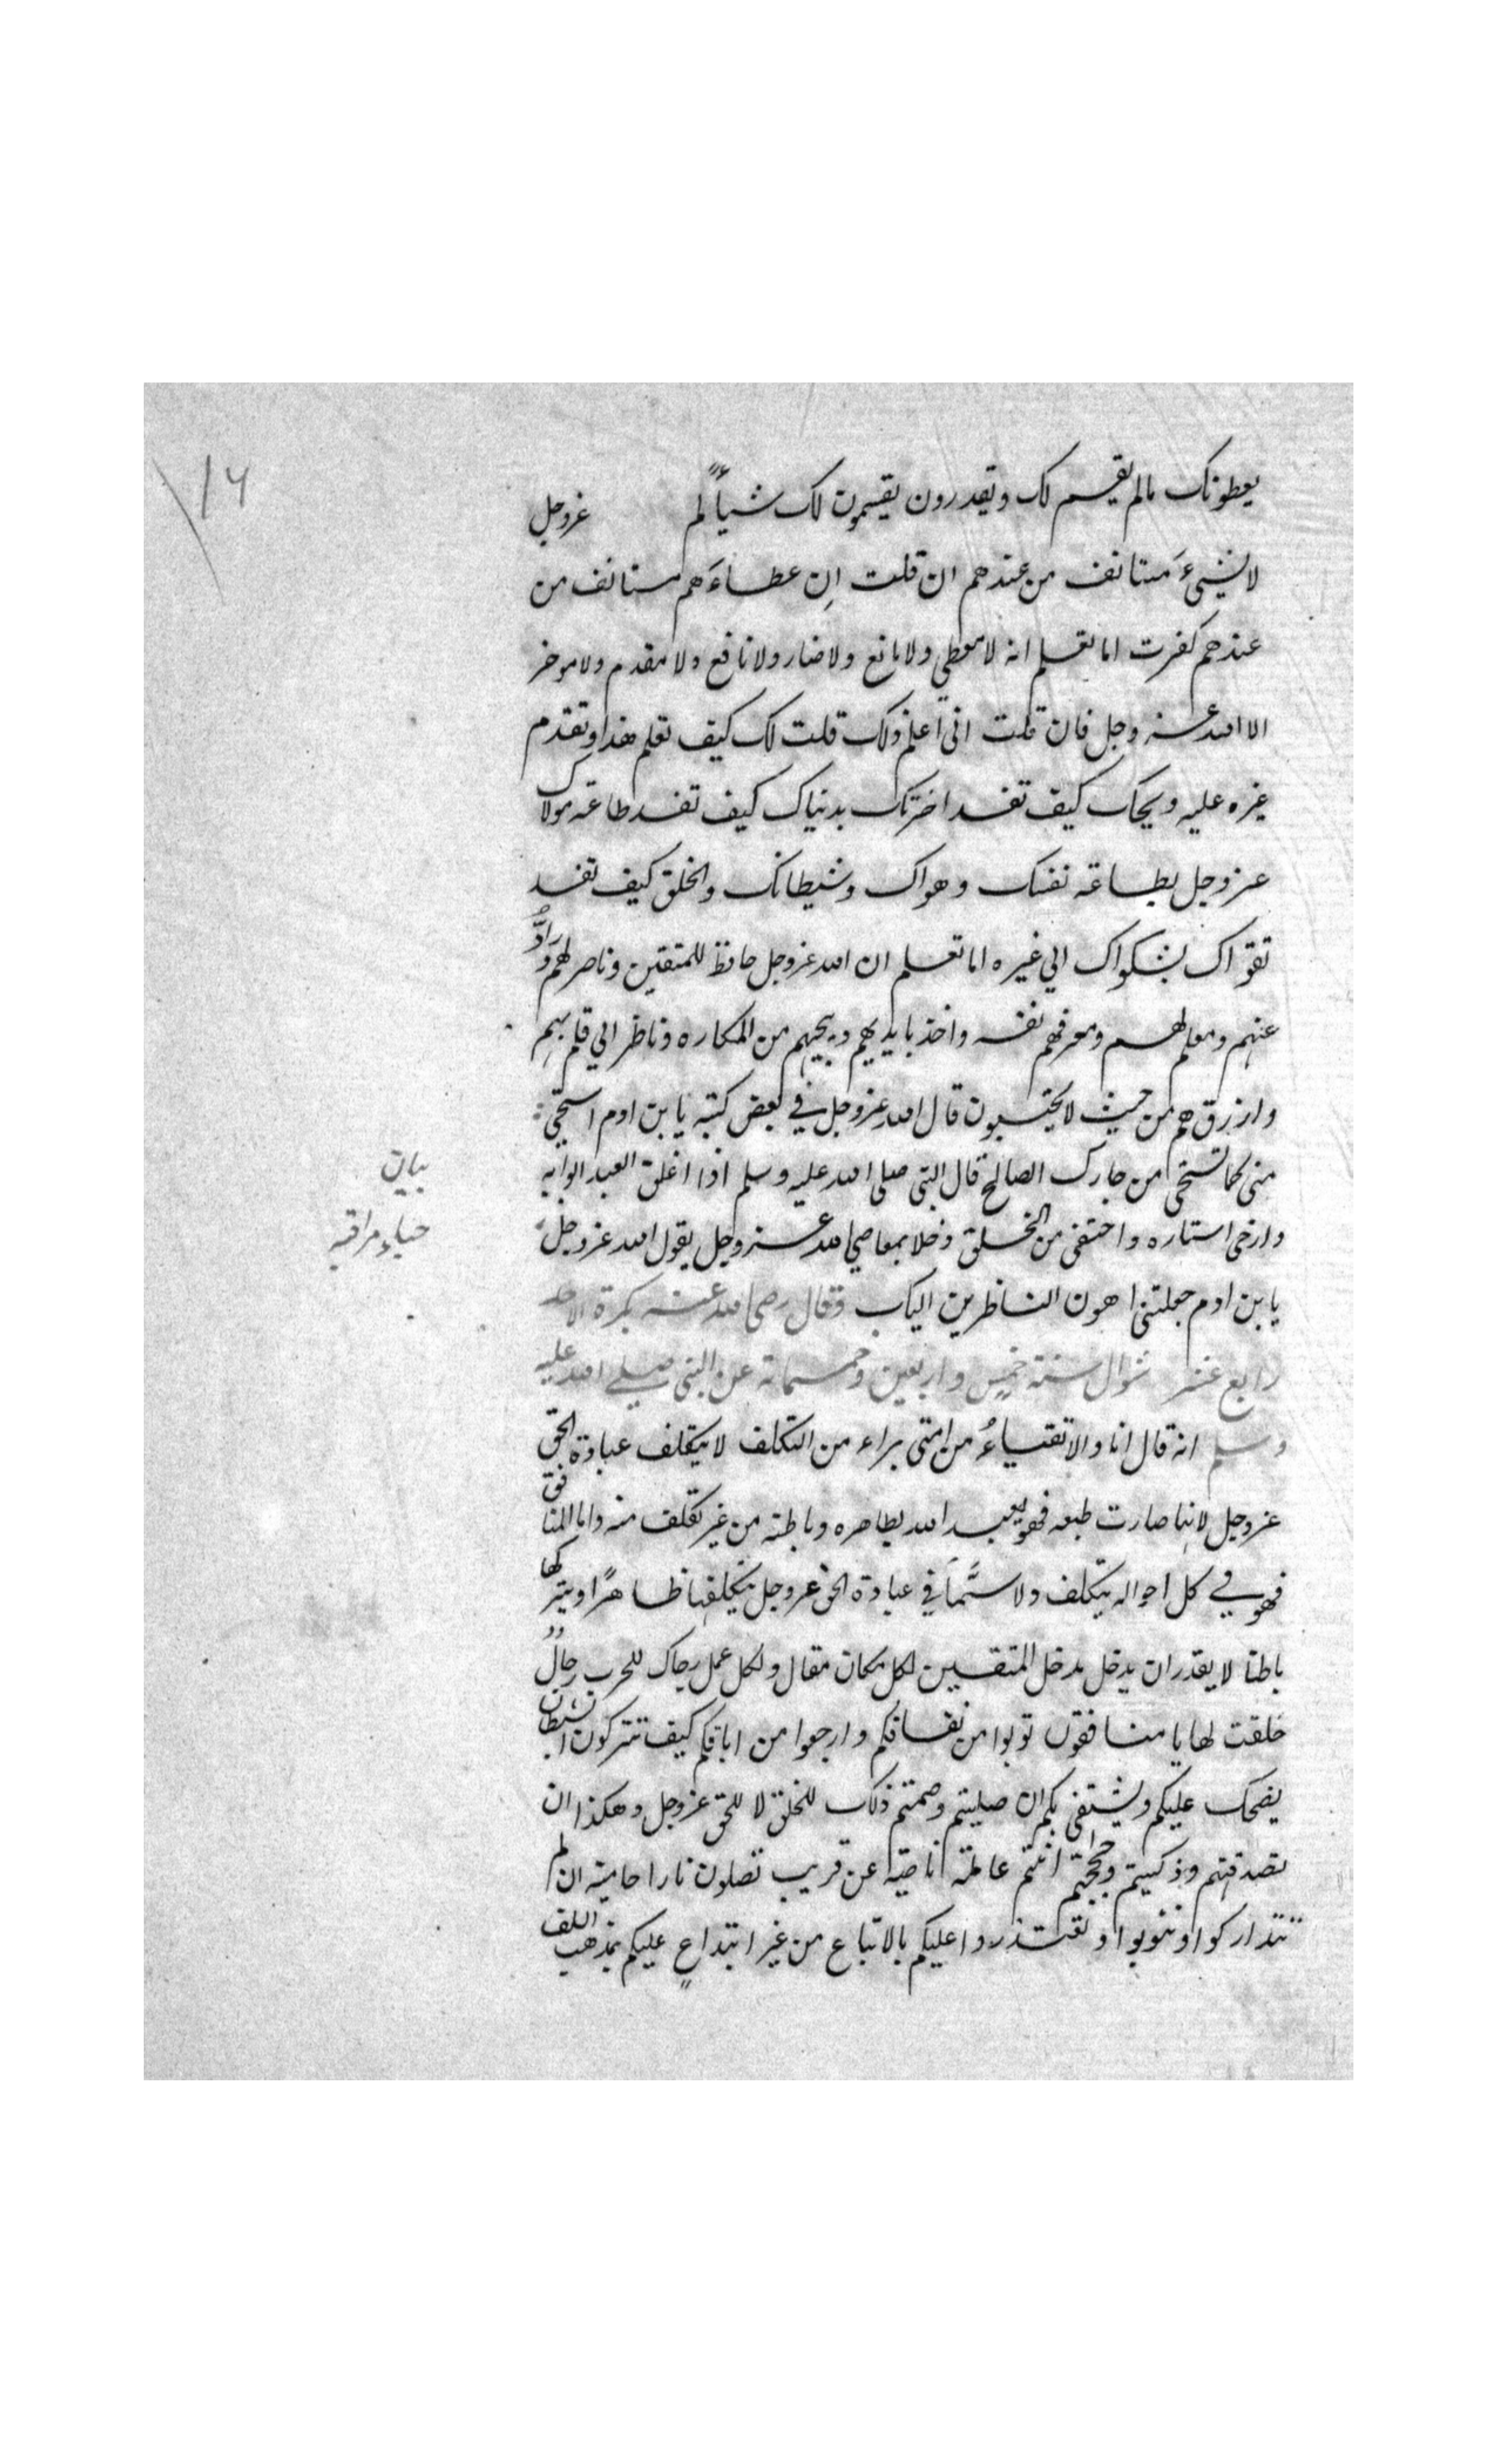 ١٦
يعطونك مالم يقسم لك ويقدرون يقسمون لك شيأً لم عزوجل
لا لشيءَ مستانف من عندهم ان قلت اِن عطاءَهم مستانف من
عندهم كفرت اما تعلم انه لا معطي ولا مانع ولا ضار ولا نافع ولا مقدم ولا موخر
الا الله عزوجل فان قلت انى اعلم ذلك قلت لك كيف تعلم هذا وتقدم
غيره عليه ويحك كيف تفسد اخرتك بدنياك كيف تفسد طاعة مولاك
عزوجل بطاعة نفسك وهواك وشيطانك والخلق كيف تفسد
تقواك بشكواك الي غيره اما تعلم ان الله عزوجل حافظ للمتقين وناصر لهم ورادٌّ
عنهم ومعلم لهم ومعرفهم نفسه واخذ بايديهم وينجيهم من المكاره وناظر الي قلوبهم
وارزقهم من حيث لا يحتسبون قال الله عزوجل في بعض كتبه يا بن ادم استحي
منى كما تستحى من جارك الصالح قال النبى صلى الله عليه وسلم اذا اغلق العبد ابوابه
وارخى استاره واختفى من الخلق وخلا بمعاصي الله عزوجل يقول الله عزوجل
يا بن ادم جعلتنى اهون الناظرين اليك وقال رضى الله عنه بكرة الاحد
رابع عشر شوال سنة خمس واربعين وخمسماة عن النبى صلي الله عليه
وسلم انه قال انا والاتقياءُ من امتى براء من التكلف لا يتكلف عبادة الحق
عزوجل لانها صارت طبعه فهو يعبد الله بظاهره وباطنه من غير تكلف منه واما المنافق
فهو في كل احواله يتكلف ولا سيَّما في عبادة الحق عزوجل يتكلفها ظاهرًا ويتركها
باطنا لا يقدر ان يدخل مدخل المتقين لكل مكان مقال ولكل عمل رجال للحرب رجالٌ
خلقت لها يا منافقون توبوا من نفاقكم وارجعوا من اباقكم كيف تتركون الشيطان
يضحك عليكم ويشتفى بكم ان صليتم وصمتم ذلك للخلق لا للحق عزوجل وهكذا ان
تصدقتم وزكيتم وحججتم انتم عاملة ناصبة عن قريب تصلون نارا حامية ان لم
تتداركوا وتتوبوا وتعتذروا عليكم بالاتباع من غير ابتداعٍ عليكم بمذهب السلف
بيان
حياء مراقبه